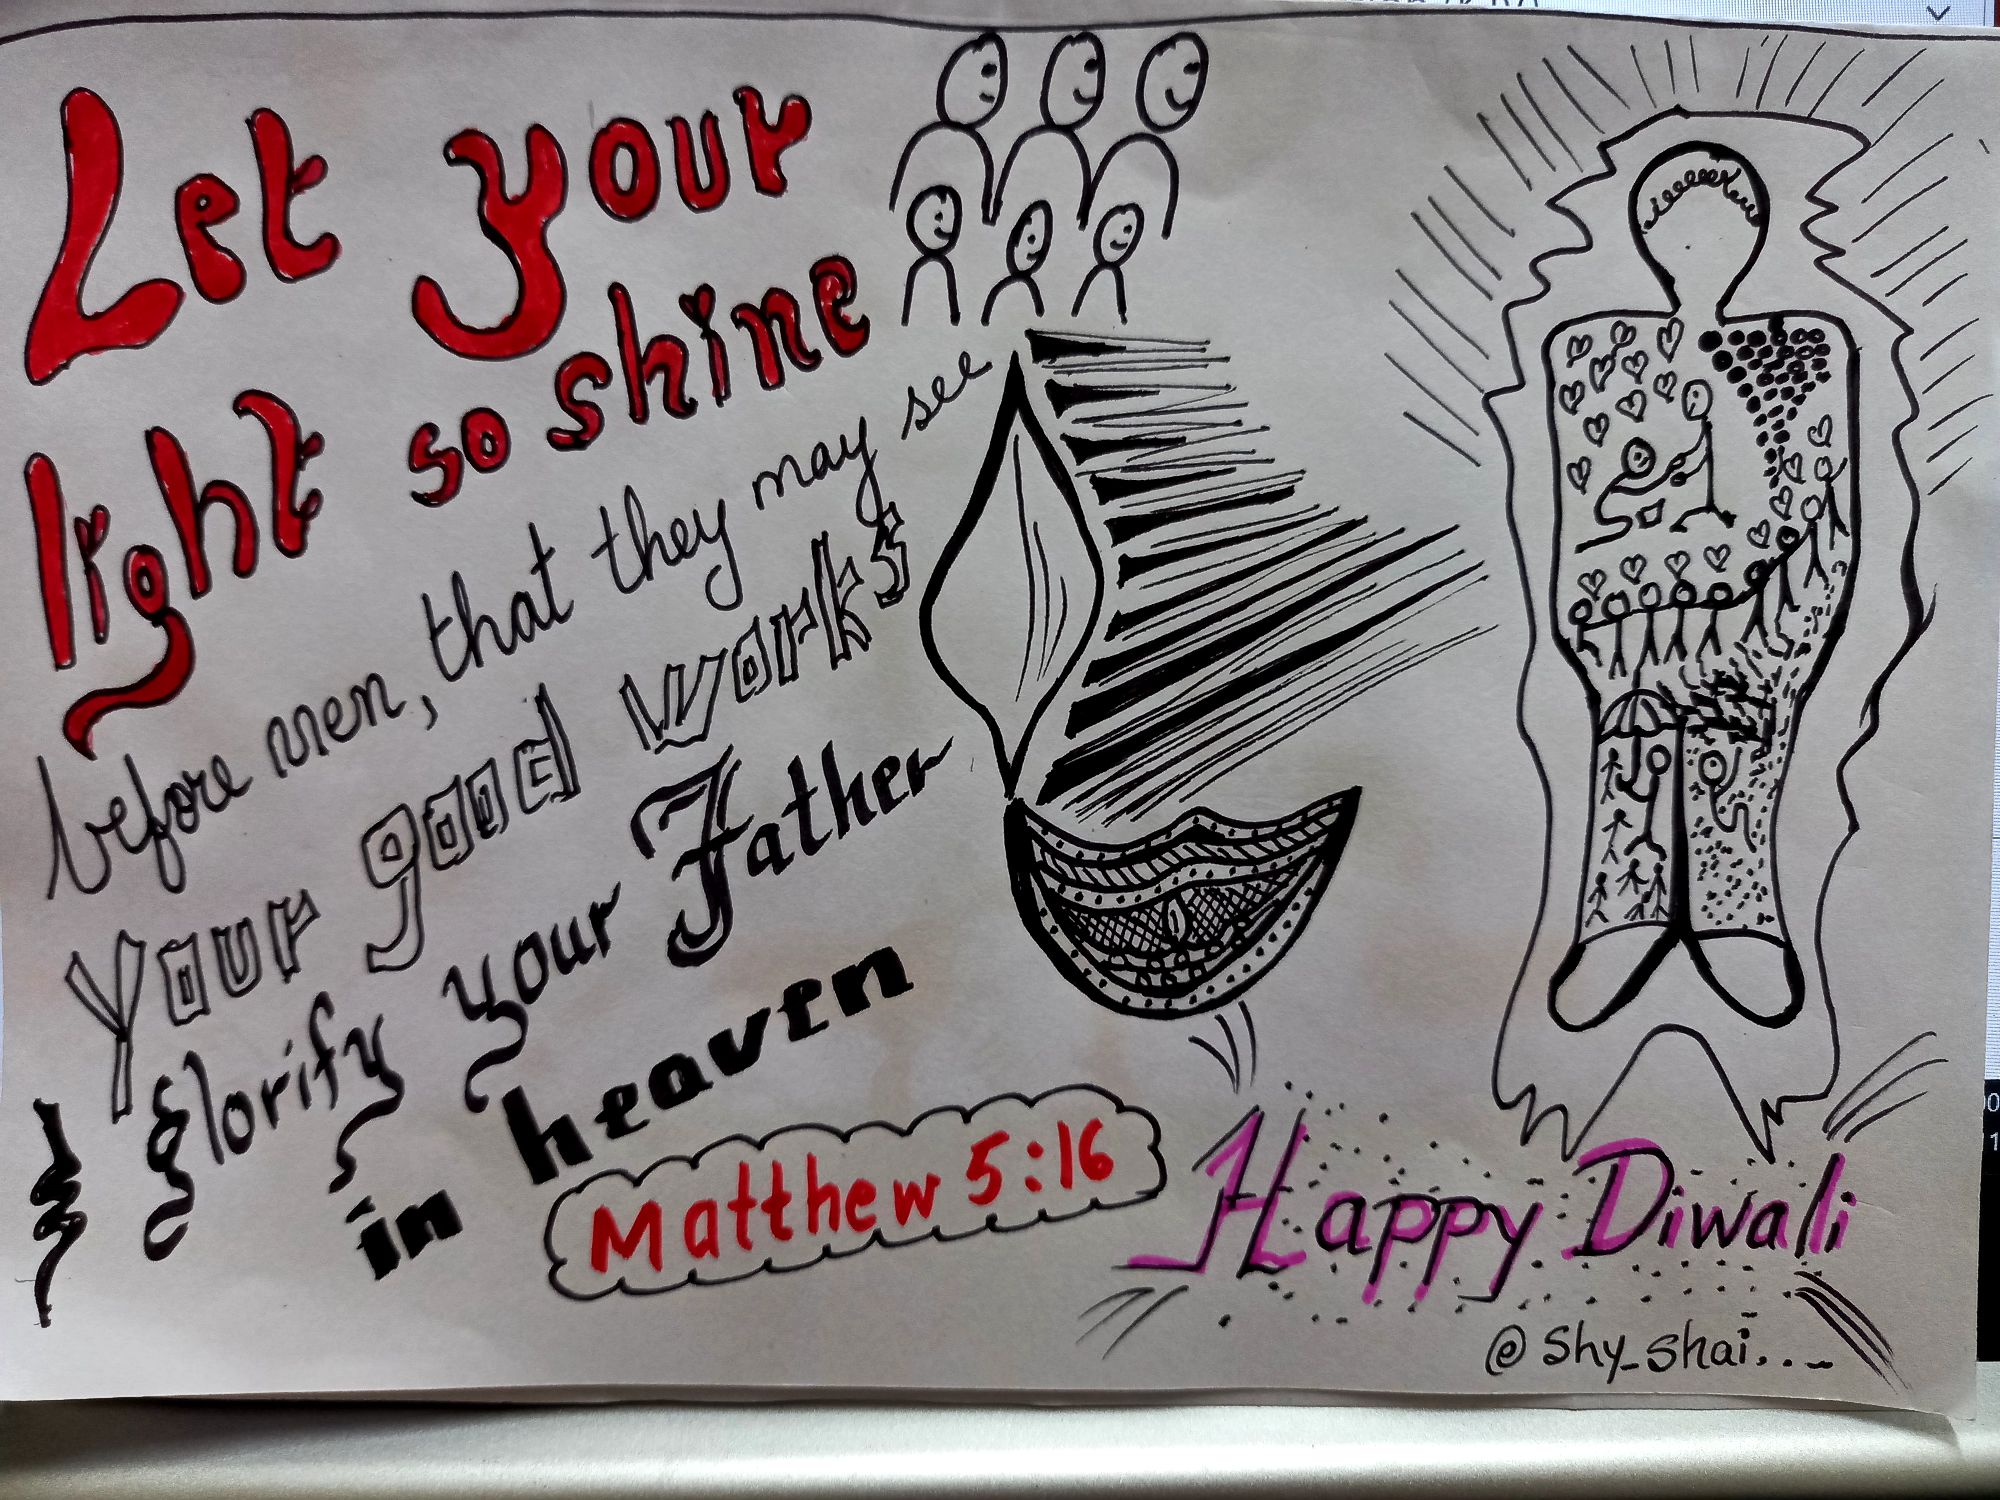 Let your
light so shine
before men, that they may see
your good works
& glorify your Father
in heaven
Matthew 5:16
Happy Diwali
@ Shy_shai..._